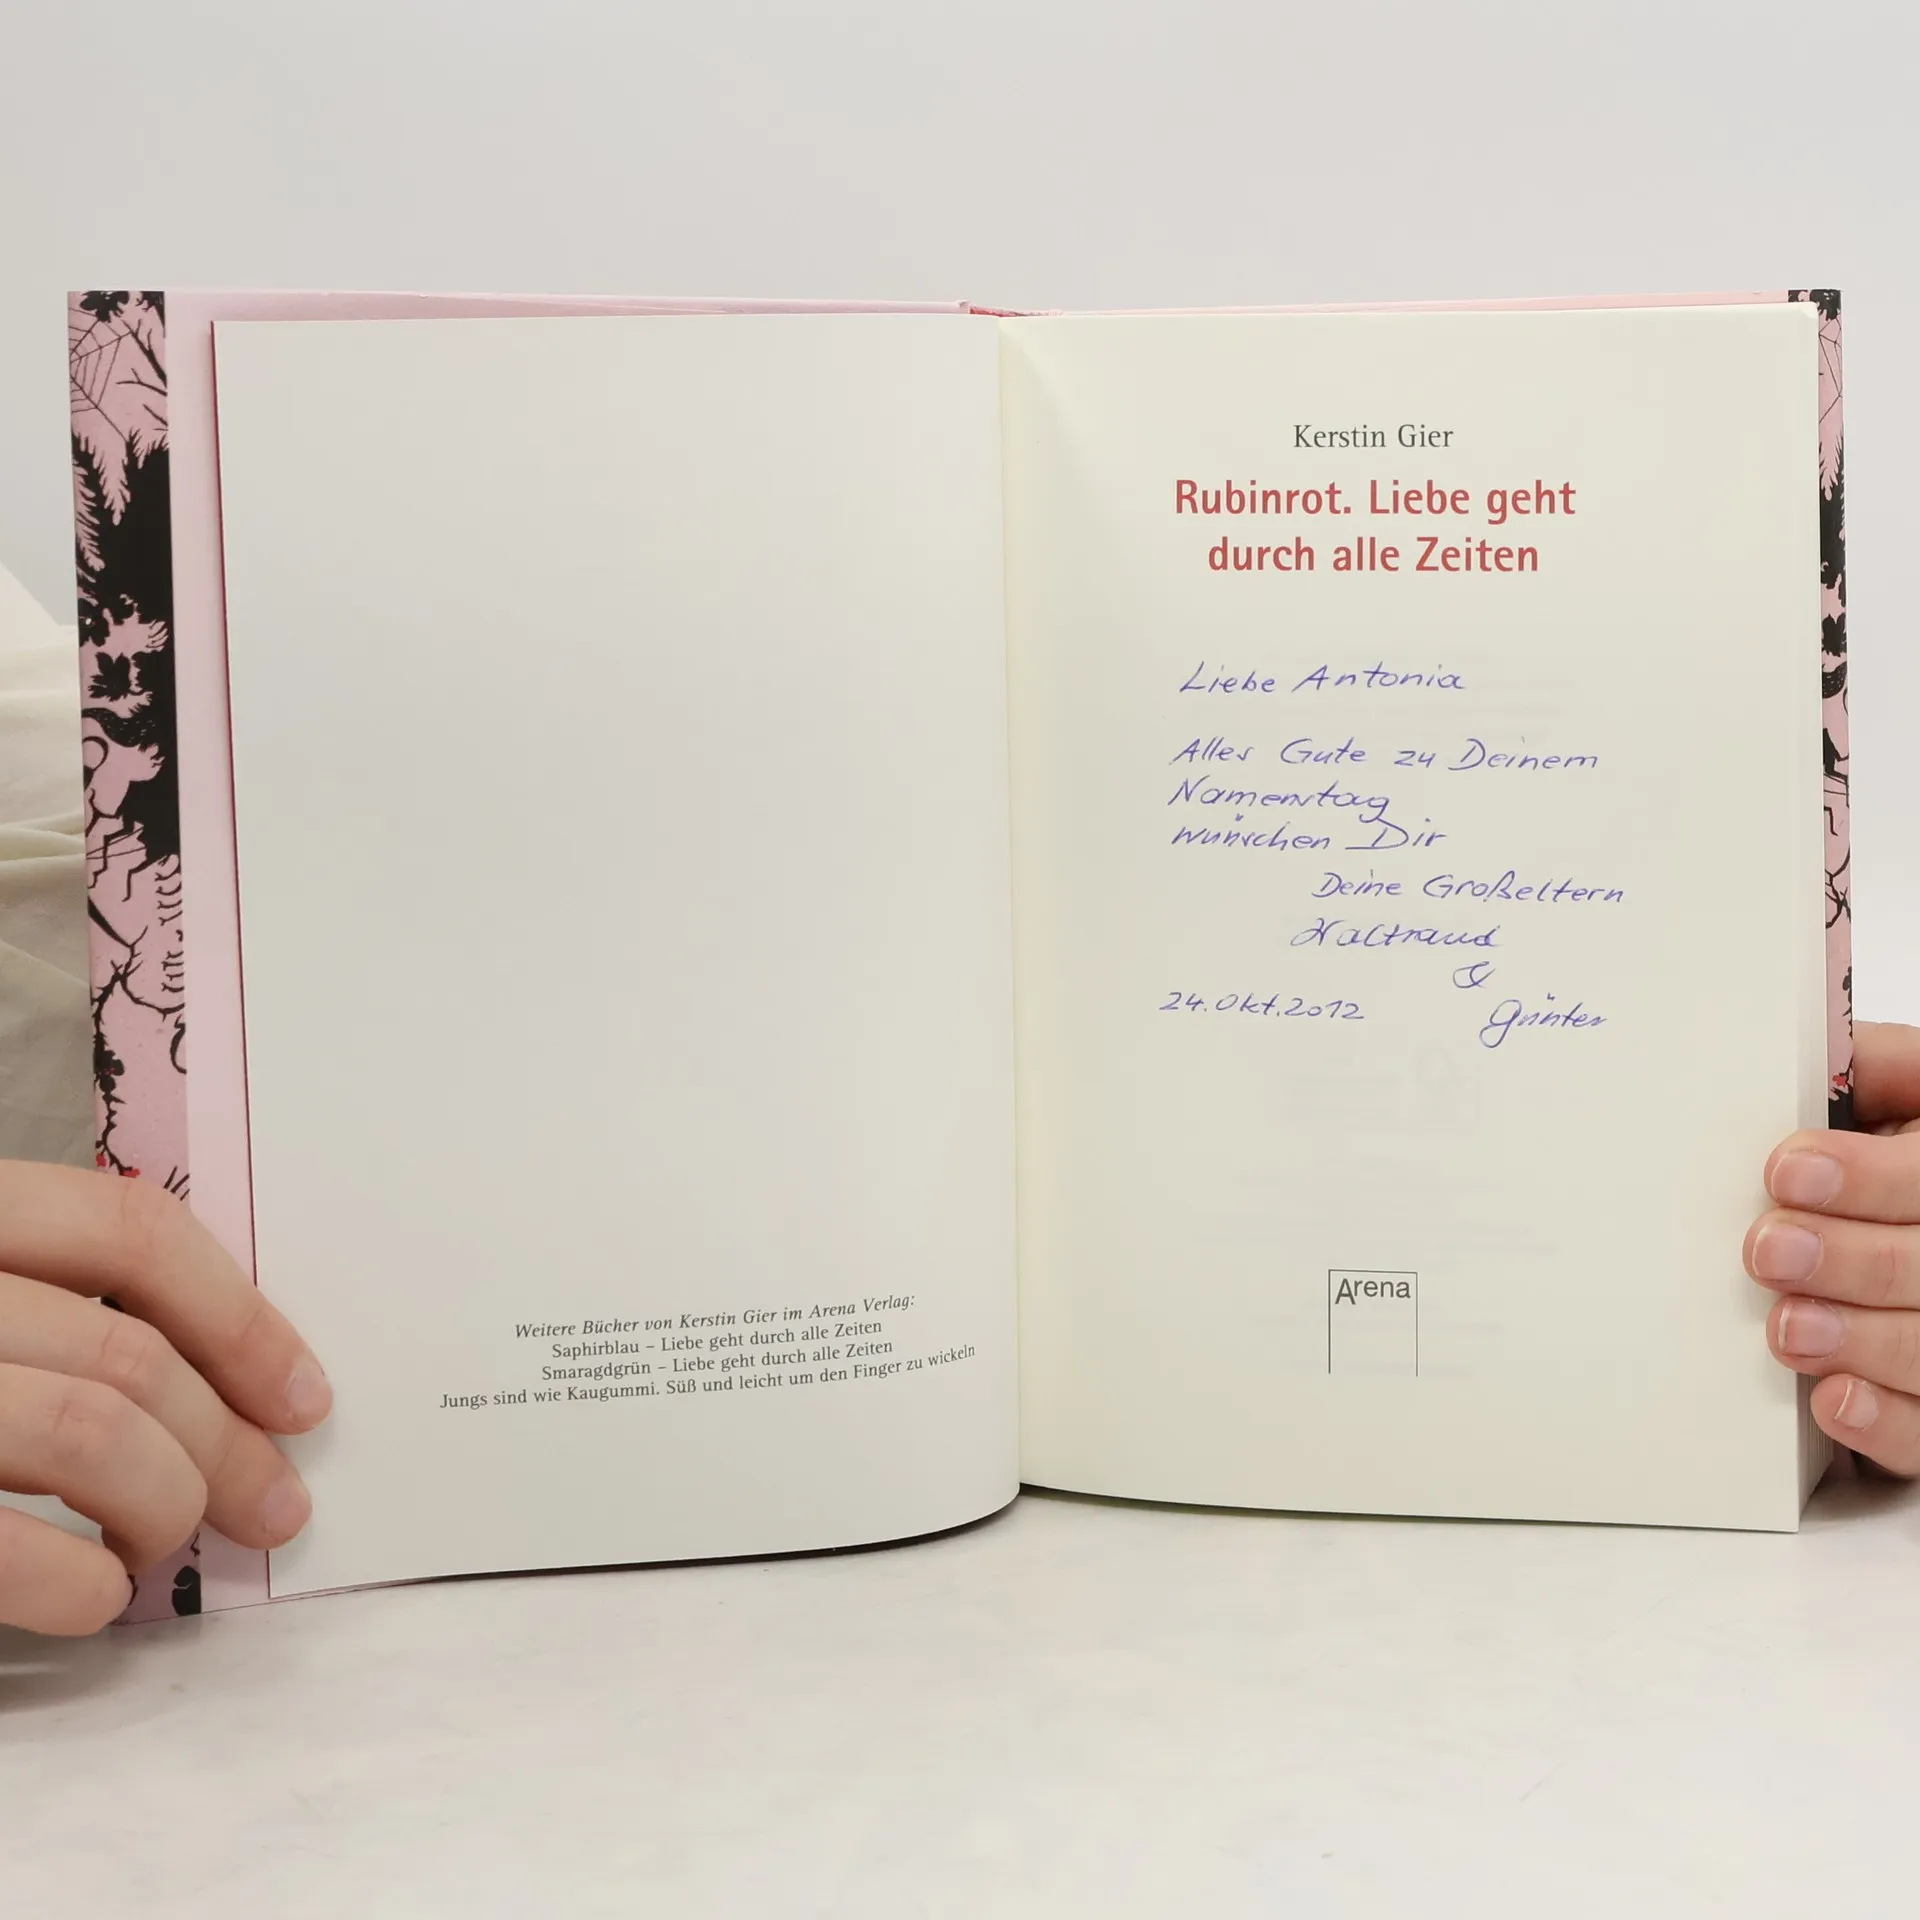 Weitere Bücher von Kerstin Gier im Arena Verlag:
Saphirblau – Liebe geht durch alle Zeiten
Smaragdgrün – Liebe geht durch alle Zeiten
Jungs sind wie Kaugummi. Süß und leicht um den Finger zu wickeln
Kerstin Gier
Rubinrot. Liebe geht
durch alle Zeiten
Liebe Antonia
Alles Gute zu Deinem
Namenstag
wünschen Dir
Deine Großeltern
Waltraud
&
24.Okt.2012
Günter
Arena